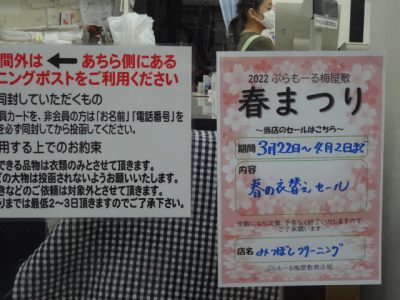 間外は ← あちら側にある
ニングポストをご利用ください
同封していただくもの
員カードを、非会員の方は「お名前」「電話番号」を
を必ず同封してから投函してください。
用する上でのお約束
できる品物は衣類のみとさせて頂きます。
の大物は投函されないようお願いいたします。
きなどのご依頼は対象外とさせて頂きます。
りまでは最低2～3日頂きますのでご了承下さい。
2022 ぷらもーる梅屋敷
春まつり
～当店のセールはこちら～
期間 3月22日～4月2日まで
内容
春の衣替えセール
定数になり次第、予告なく終了いたしますので
ご了承願います
店名 みつぼしクリーニング
ぷらもーる梅屋敷商店街